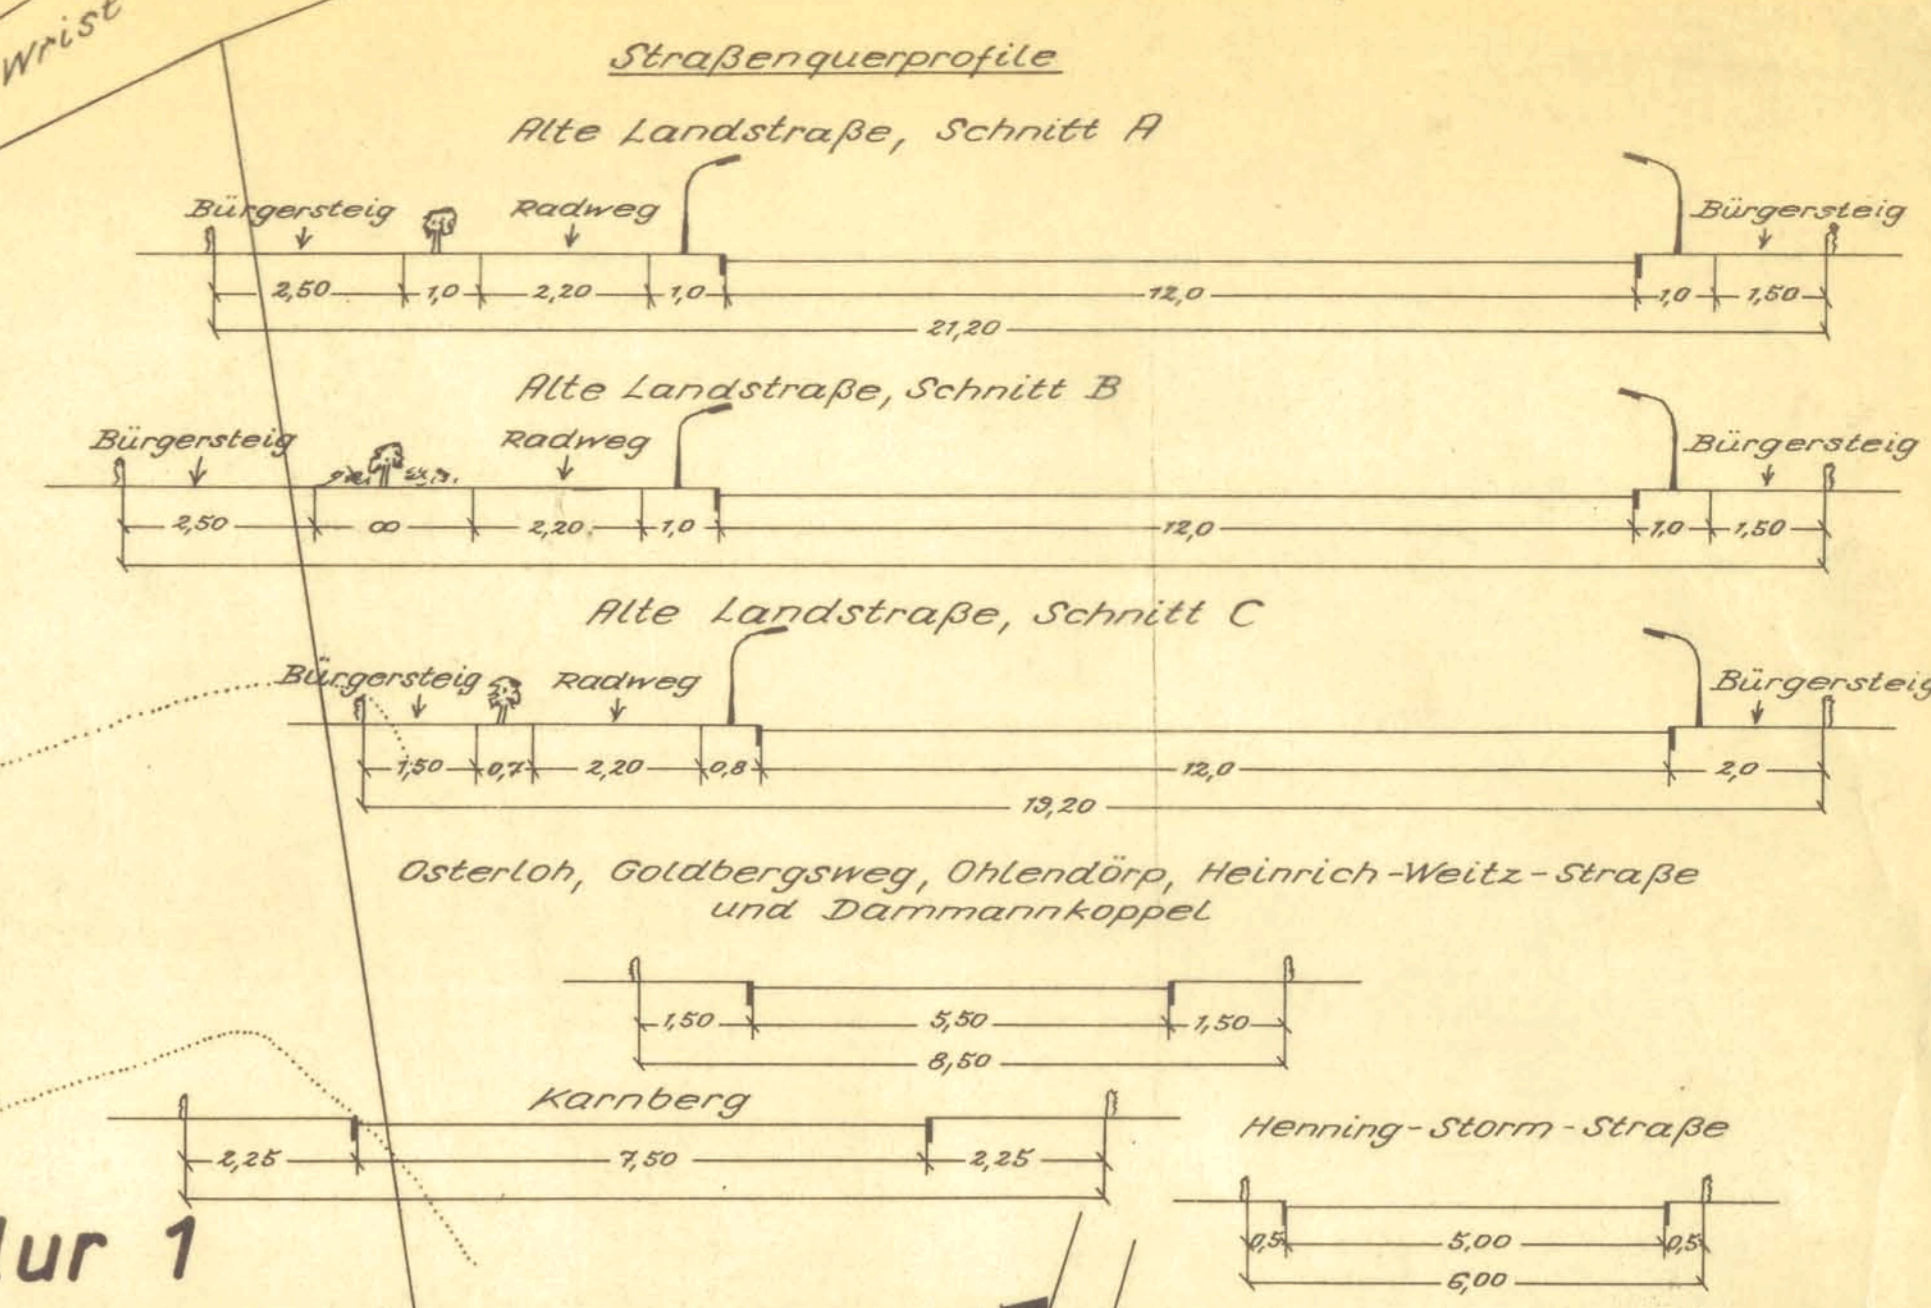 Wrist
Straßenquerprofile
Alte Landstraße, Schnitt A
Bürgersteig Radweg Bürgersteig
2,50 1,0 2,20 1,0 12,0 1,0 1,50
21,20
Alte Landstraße, Schnitt B
Bürgersteig Radweg Bürgersteig
2,50 ∞ 2,20 1,0 12,0 1,0 1,50
Alte Landstraße, Schnitt C
Bürgersteig Radweg Bürgersteig
1,50 0,7 2,20 0,8 12,0 2,0
19,20
Osterloh, Goldbergsweg, Ohlendörp, Heinrich-Weitz-Straße
und Dammannkoppel
1,50 5,50 1,50
8,50
Karnberg
2,25 7,50 2,25
Henning-Storm-Straße
0,5 5,00 0,5
6,00
lur 1